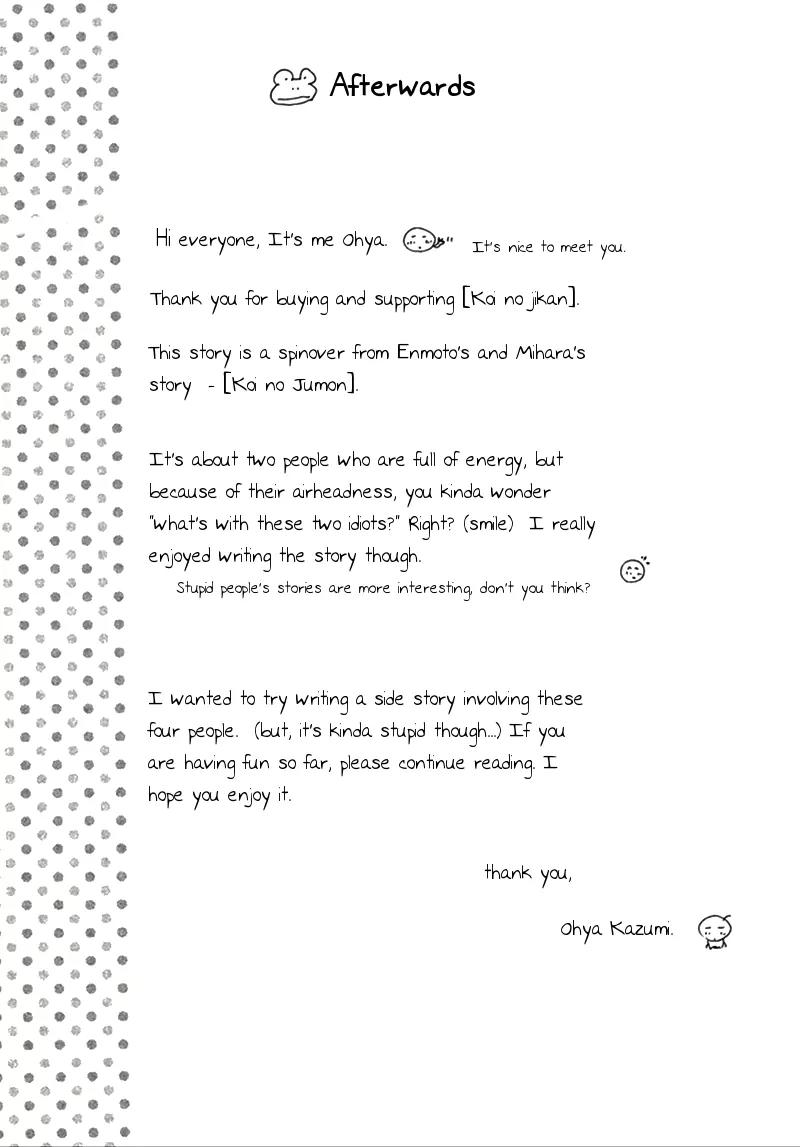 Afterwards
Hi everyone, It's me Ohya.
It's nice to meet you.
Thank you for buying and supporting [Koi no jikan].
This story is a spinover from Enmoto's and Mihara's
story - [Koi no Jumon].
It's about two people who are full of energy, but
because of their airheadness, you kinda wonder
"what's with these two idiots?" Right? (smile) I really
enjoyed writing the story though.
Stupid people's stories are more interesting, don't you think?
I wanted to try writing a side story involving these
four people. (but, it's kinda stupid though...) If you
are having fun so far, please continue reading. I
hope you enjoy it.
thank you,
Ohya Kazumi.